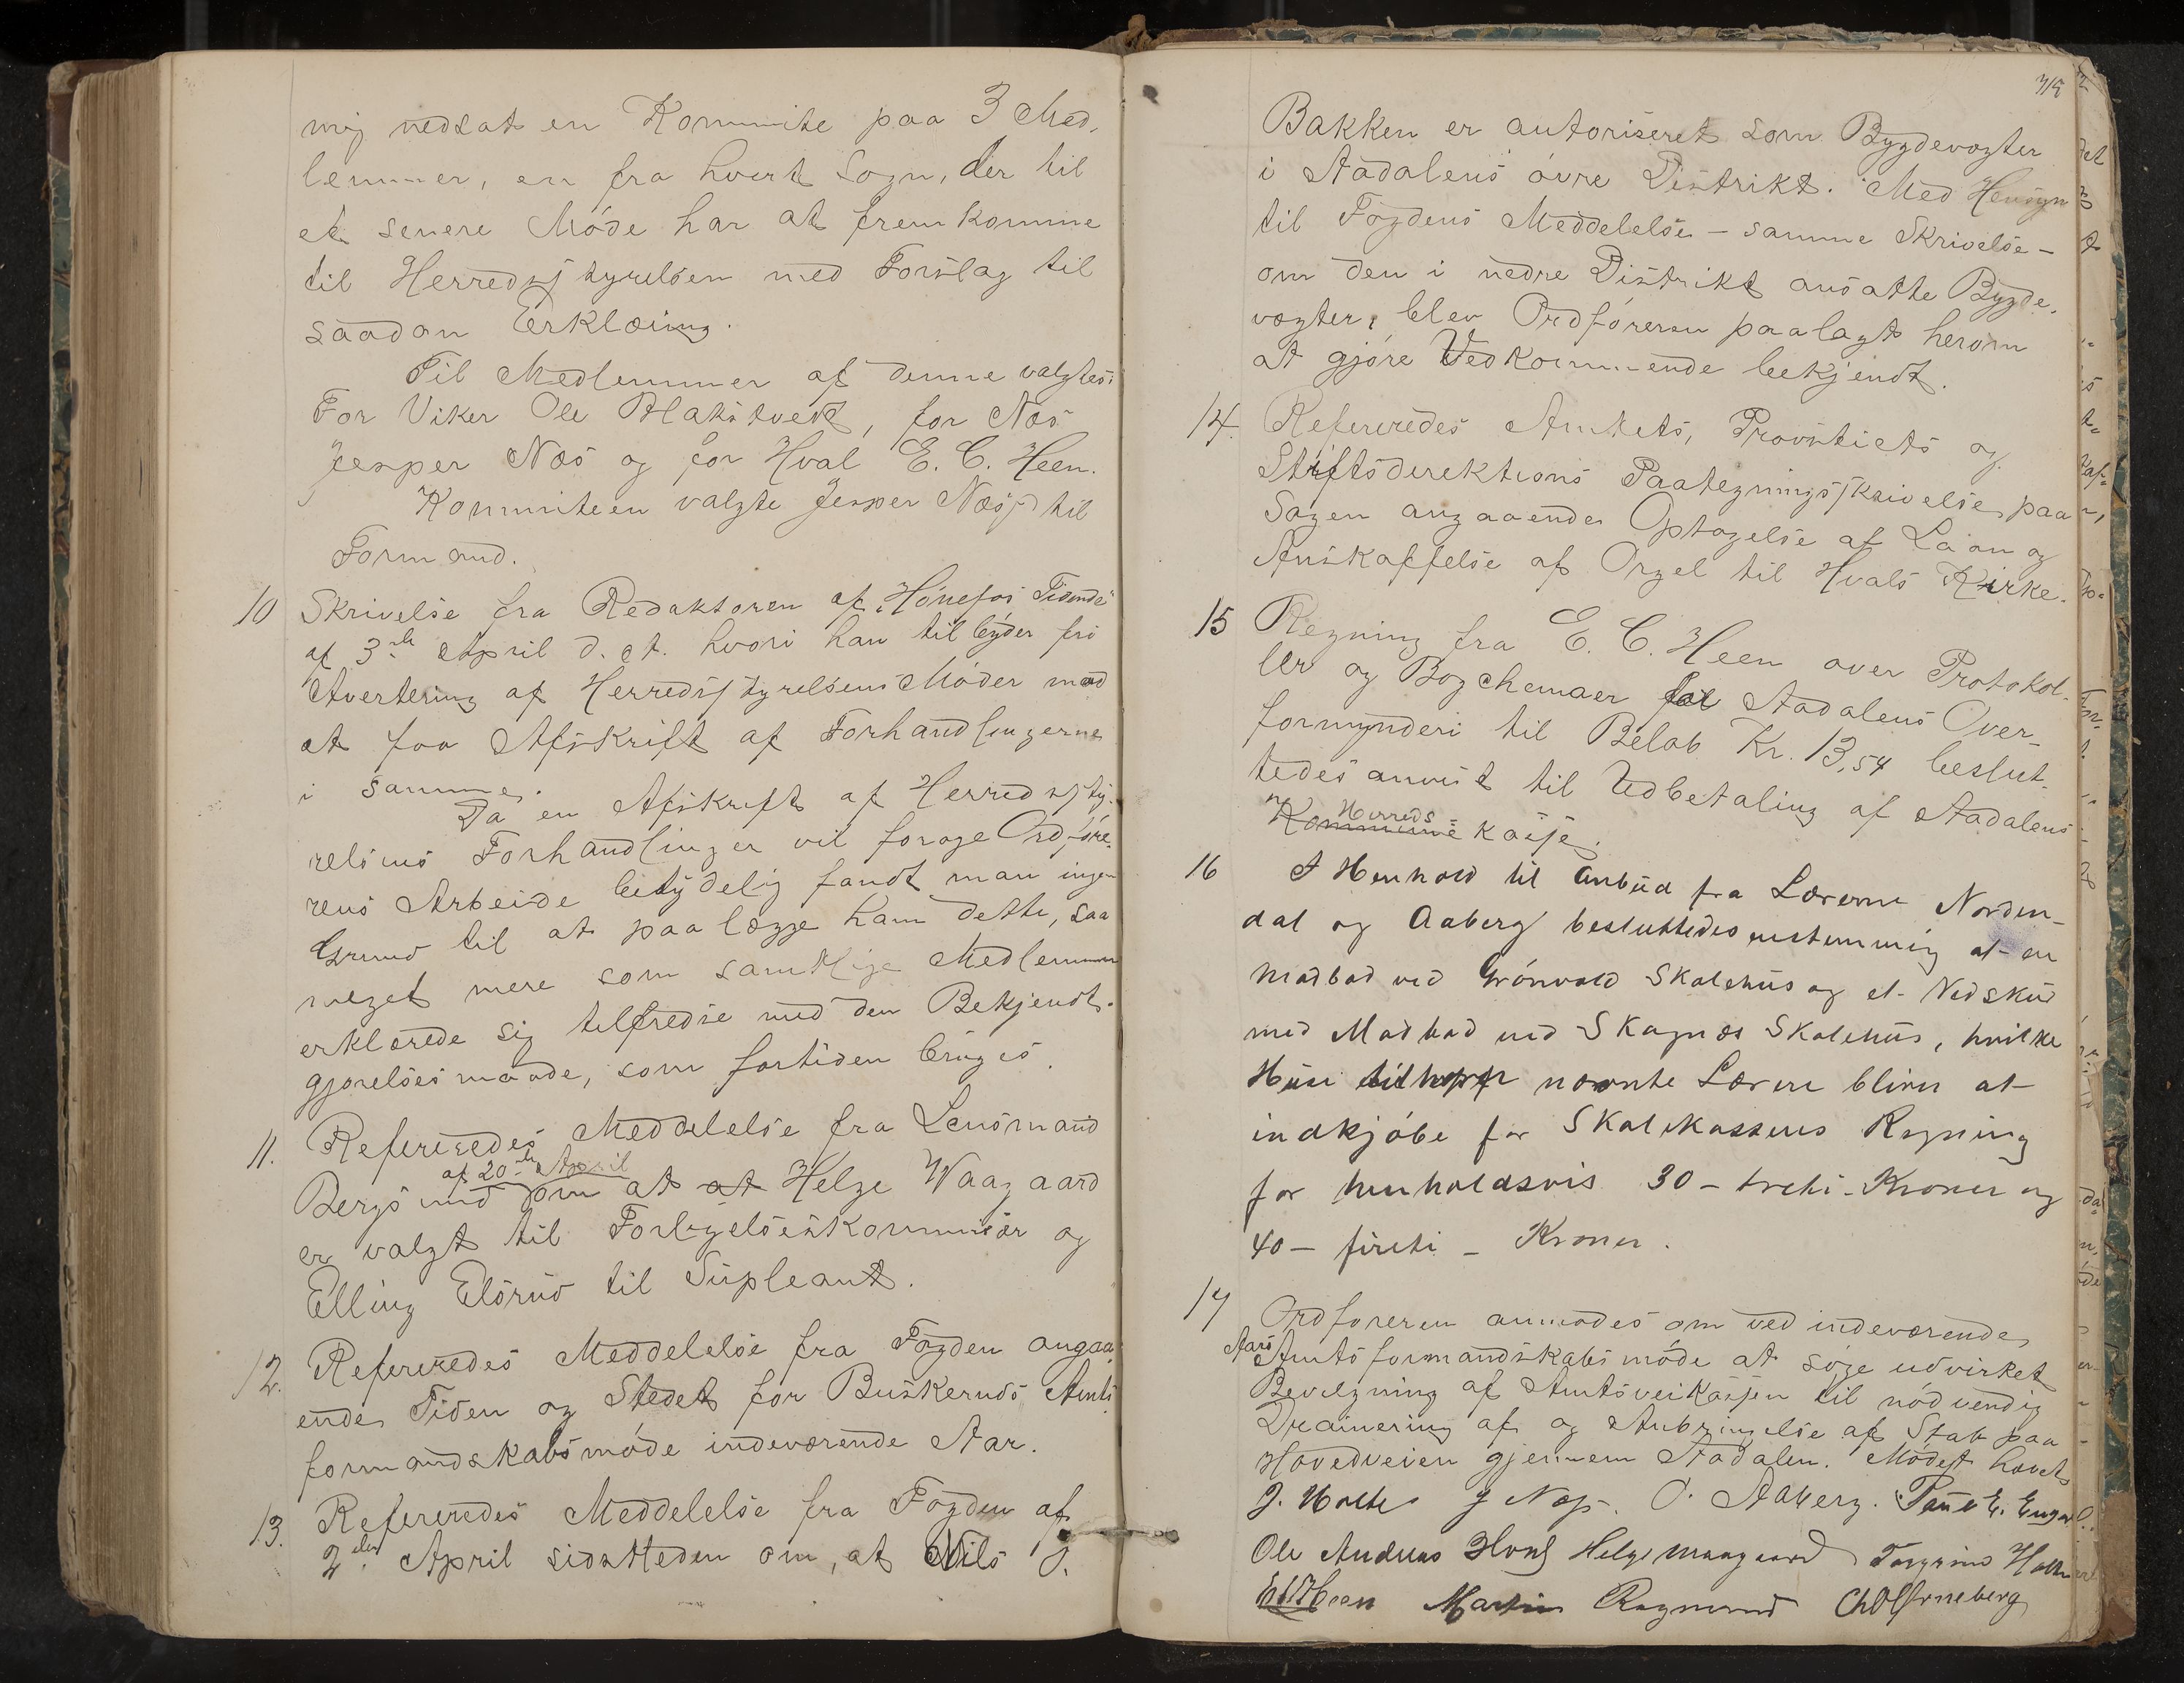 mig nedsat en Kommite paa 3 Med-
lemmer, en fra hvert Sogn, der til
et senere Möde har at fremkomme
til Herredsstyrelsen med Forslag til
saadan Erklæring.
Til Medlemmer af denne valgtes:
For Viker Ole Blakstvedt, for Næs
Jesper Næs og for Hval E. C. Heen.
Kommiteen valgte Jesper Næss til
Formand.
10 Skrivelse fra Redaktøren af "Hönefos Tidende"
af 3die April d. A. hvori han tilbyder fri
Avertering af Herredsstyrelsens Möder mod
at faa Afskrift af Forhandlingerne
i samme.
Da en Afskrift af Herredssty-
relsens Forhandlinger vil foröge Ordföre-
rens Arbeide betydelig fandt man ingen
Grund til at paalægge ham dette, saa
meget mere som samtlige Medlemmer
erklærede sig tilfredse med den Bekjendt-
gjørelsesmaade, som fortiden bruges.
11. Refereredes Meddelelse fra Lensmand
af 20de April
Bergsund om at at Helge Waagaard
er valgt til Forligelseskommisær og
Elling Elsrud til Supleant.
12. Refereredes Meddelelse fra Fogden angaa-
ende Tiden og Stedet for Buskeruds Amts-
formandskabsmöde indeværende Aar.
13. Refereredes Meddelelse fra Fogden af
2den April sidstleden om, at Nils O.
315
Bakken er autoriseret som Bygdevogter
i Aadalens övre Distrikt. Med Hensyn
til Fogdens Meddelelse – samme Skrivelse –
om den i nedre Distrikt ansatte Bygde-
vogter, blev Ordföreren paalagt herom
at gjöre Vedkommende bekjendt.
14. Refereredes Amtets, Provstiets og
Stiftsdirektions Paategningsskrivelse paa
Sagen angaaende Optagelse af Laan og
Anskaffelse af Orgel til Hvals Kirke.
15 Regning fra E. C. Heen over Protokol-
ler og Bogchemaer for Aadalens Over-
formynderi til Beløb Kr. 13,54 beslut-
tedes anvist til Udbetaling af Aadalens
Herreds-
Kommune kasse.
16 I Henhold til Anbud fra Lærerne Norden-
dal og Aaberg besluttedes enstemmig at en
Madbod ved Grönvold Skolehus og et Vedskur
med Madbod ved Skagnæs Skolehus, hvilke
Huse nævnte Lærere bliver at
indkjöbe for Skolekassens Regning
for henholdsvis 30 – treti – Kroner og
40 – fireti – Kroner.
17 Ordföreren anmodes om ved indeværende
Aars Amtsformandskabsmöde at söge udvirket
Bevilgning af Amtsveikassen til nödvendig
Drainering af og Anbringelse af Stab paa
Hovedveien gjennem Aadalen. Mödet hævet
J. Holte J Næs. O. Aaberg. Paul E. Enger
Ole Andreas Hval Helge Waagaard Torgrim Holte
E C Heen Martin Ragnerud